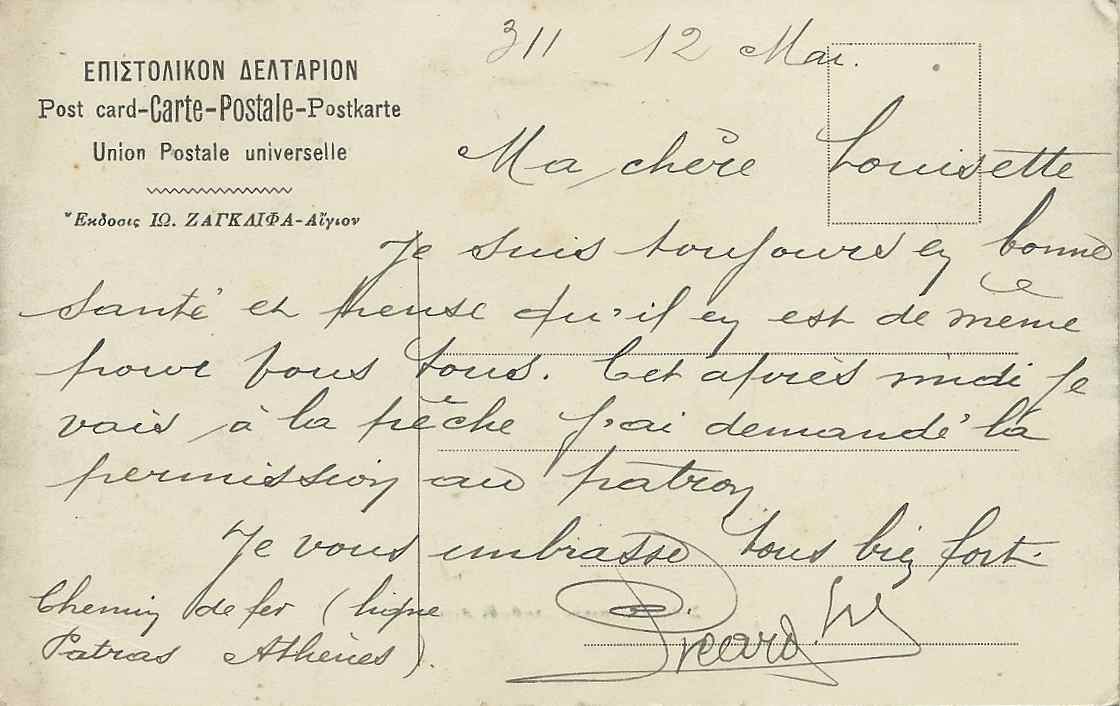 ΕΠΙΣΤΟΛΙΚΟΝ ΔΕΛΤΑΡΙΟΝ
Post card-Carte-Postale-Postkarte
Union Postale universelle
Ἔκδοσις ΙΩ. ΖΑΓΚΛΙΦΑ-Αἴγιον
311 12 Mai.
Ma chère Louisette
Je suis toujours en bonne
santé et heuse qu'il en est de même
pour vous tous. Cet après midi je
vais à la pêche j'ai demandé la
permission au patron
Je vous embrasse tous bien fort.
Chemin de fer (ligne
Patras Athènes).